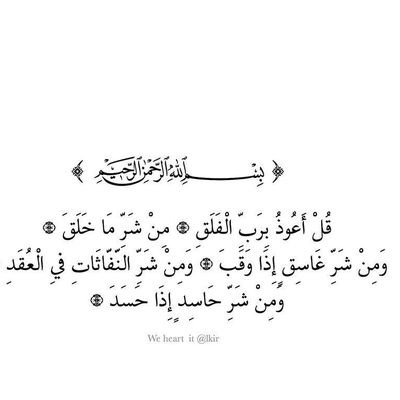 ﴾ بِسْمِ اللَّهِ الرَّحْمَٰنِ الرَّحِيمِ ﴿
قُلْ أَعُوذُ بِرَبِّ الْفَلَقِ ۞ مِنْ شَرِّ مَا خَلَقَ ۞
وَمِنْ شَرِّ غَاسِقٍ إِذَا وَقَبَ ۞ وَمِنْ شَرِّ النَّفَّاثَاتِ فِي الْعُقَدِ
وَمِنْ شَرِّ حَاسِدٍ إِذَا حَسَدَ ۞
We heart it @lkir